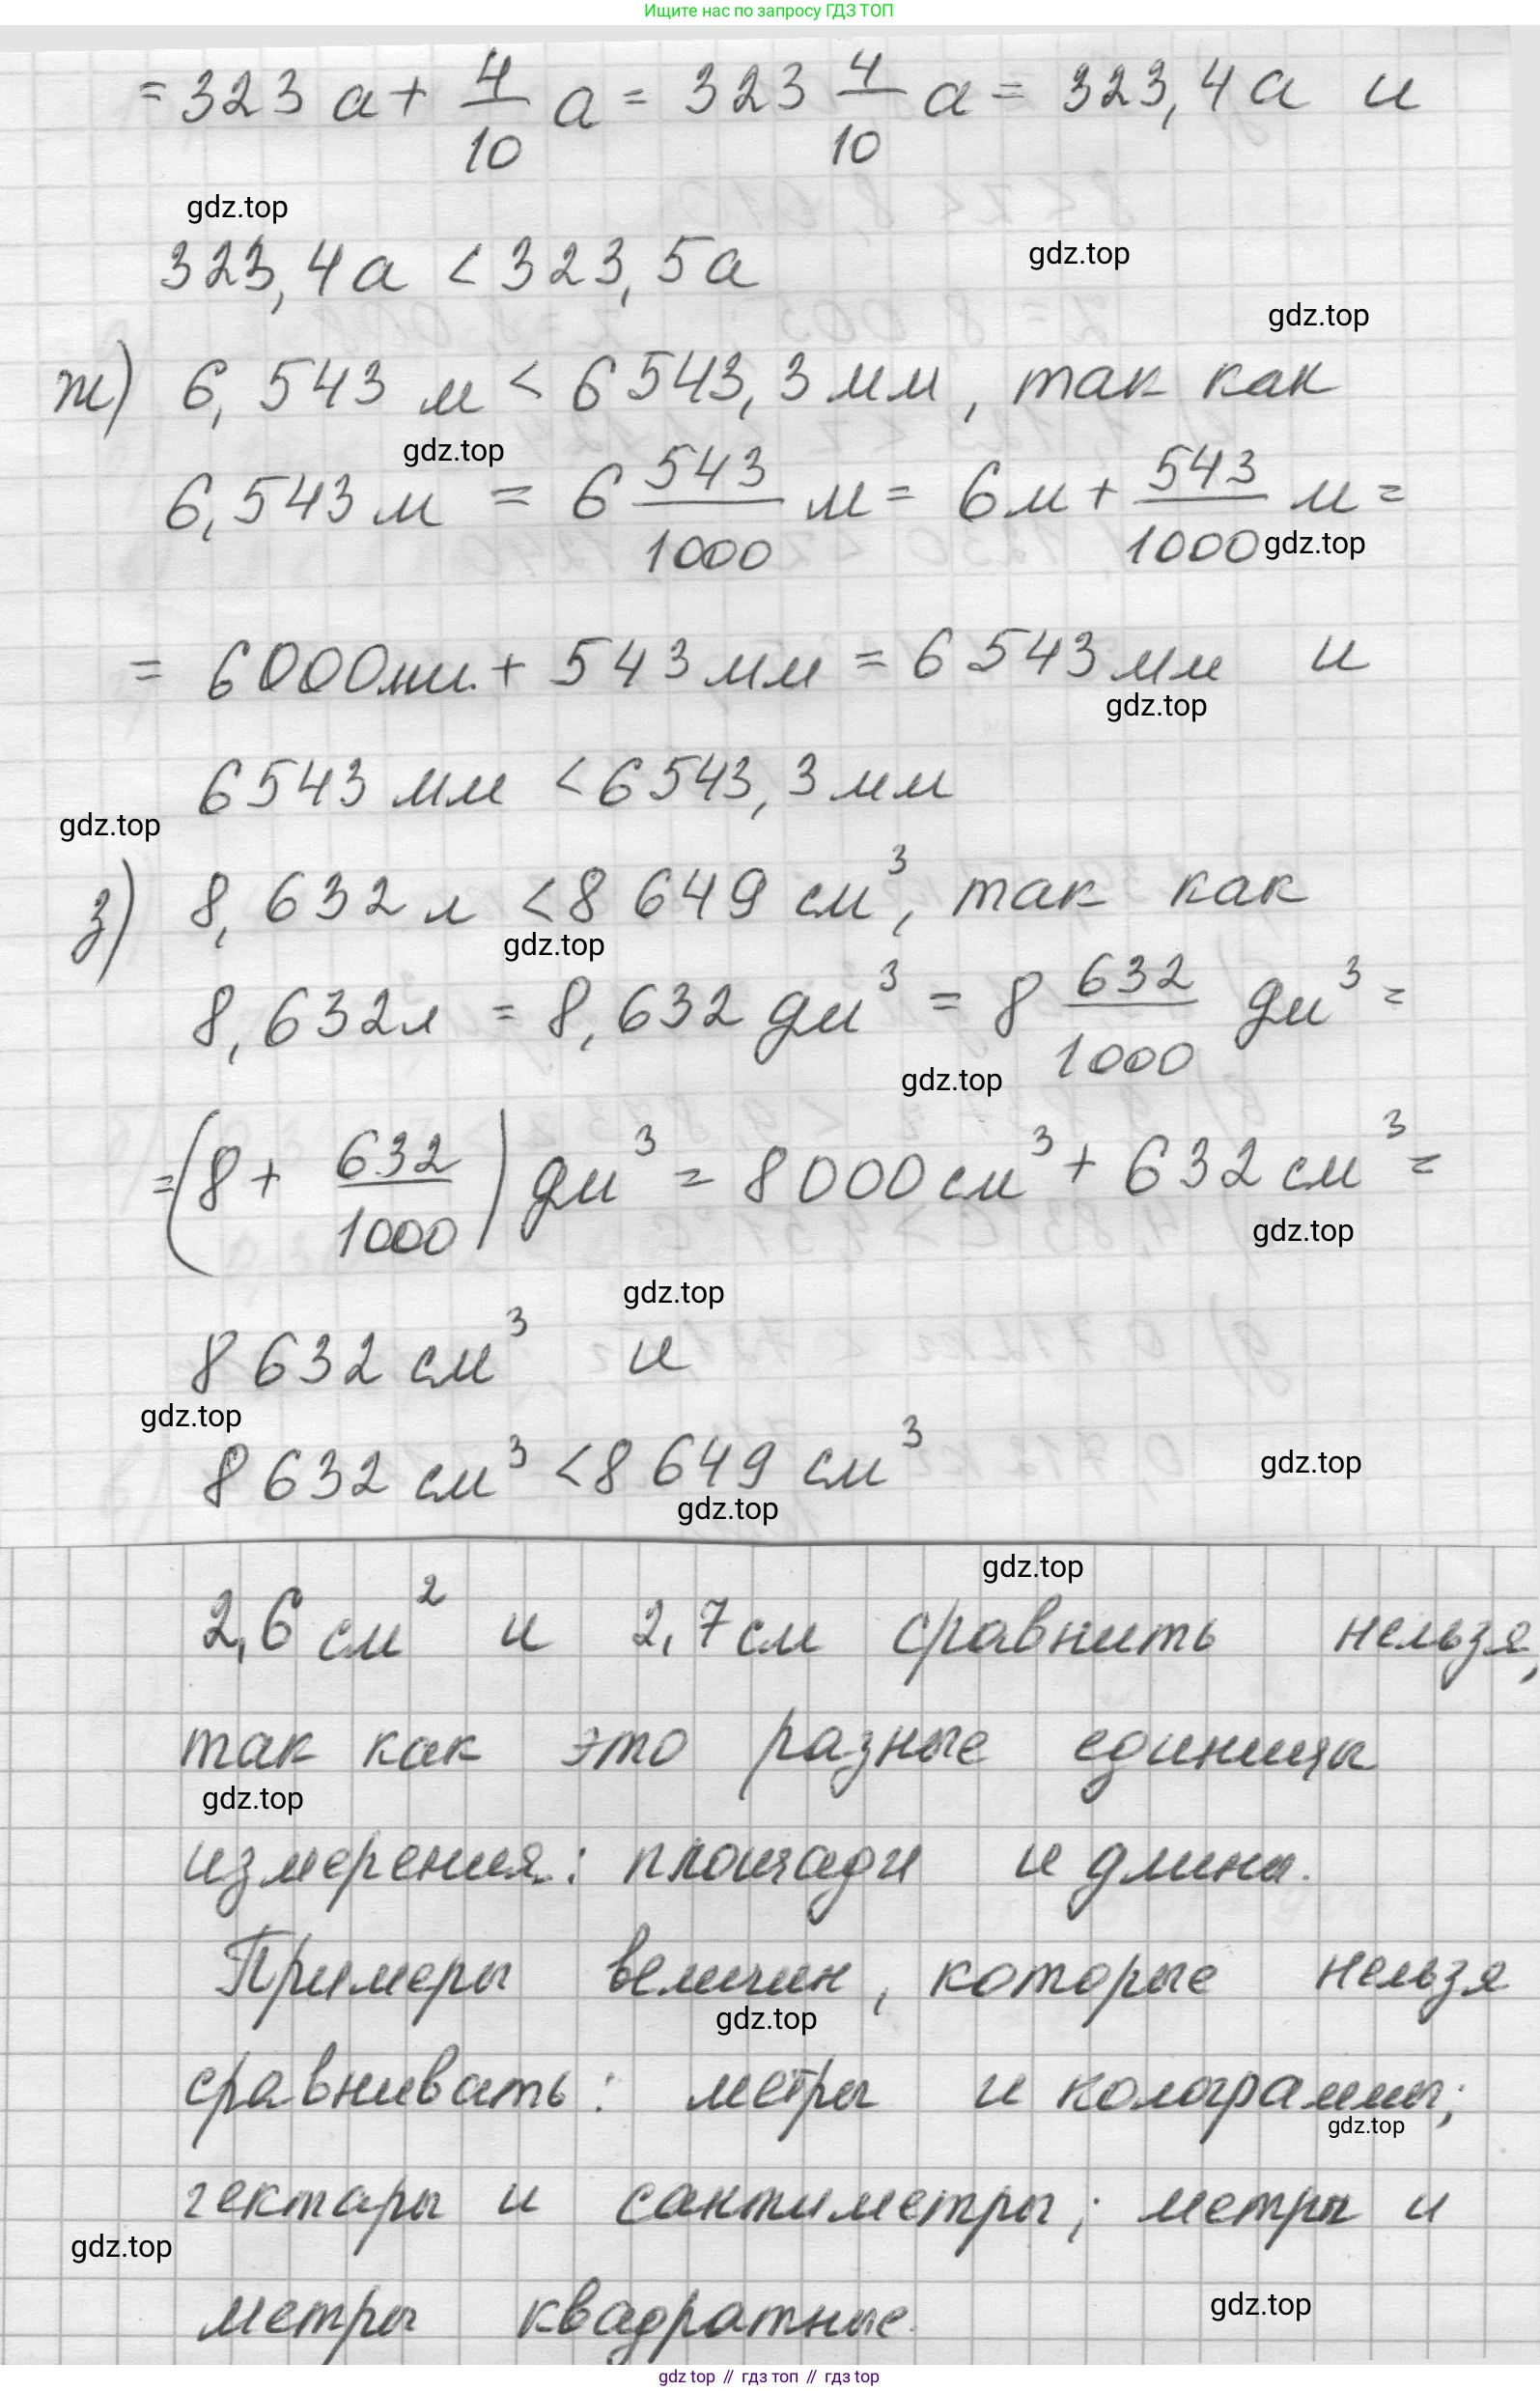 Ищите нас по запросу ГДЗ ТОП
= 323 а + 4/10 а = 323 4/10 а = 323,4 а и
gdz.top
323,4 а < 323,5 а
gdz.top
gdz.top
ж) 6,543 м < 6543,3 мм, так как
gdz.top
6,543 м = 6 543/1000 м = 6 м + 543/1000 м =
gdz.top
= 6000 мм + 543 мм = 6543 мм и
gdz.top
6543 мм < 6543,3 мм
gdz.top
з) 8,632 л < 8 649 см³, так как
gdz.top
8,632 л = 8,632 дм³ = 8 632/1000 дм³ =
gdz.top
= (8 + 632/1000) дм³ = 8000 см³ + 632 см³ =
gdz.top
gdz.top
8632 см³ и
gdz.top
8632 см³ < 8649 см³
gdz.top
gdz.top
gdz.top
2,6 см² и 2,7 см сравнить нельзя,
так как это разные единицы
gdz.top
измерения: площади и длины.
Примеры величин, которые нельзя
gdz.top
сравнивать: метры и колограммы;
gdz.top
гектары и сантиметры; метры и
gdz.top
метры квадратные.
gdz.top
gdz top // гдз топ // гдз top